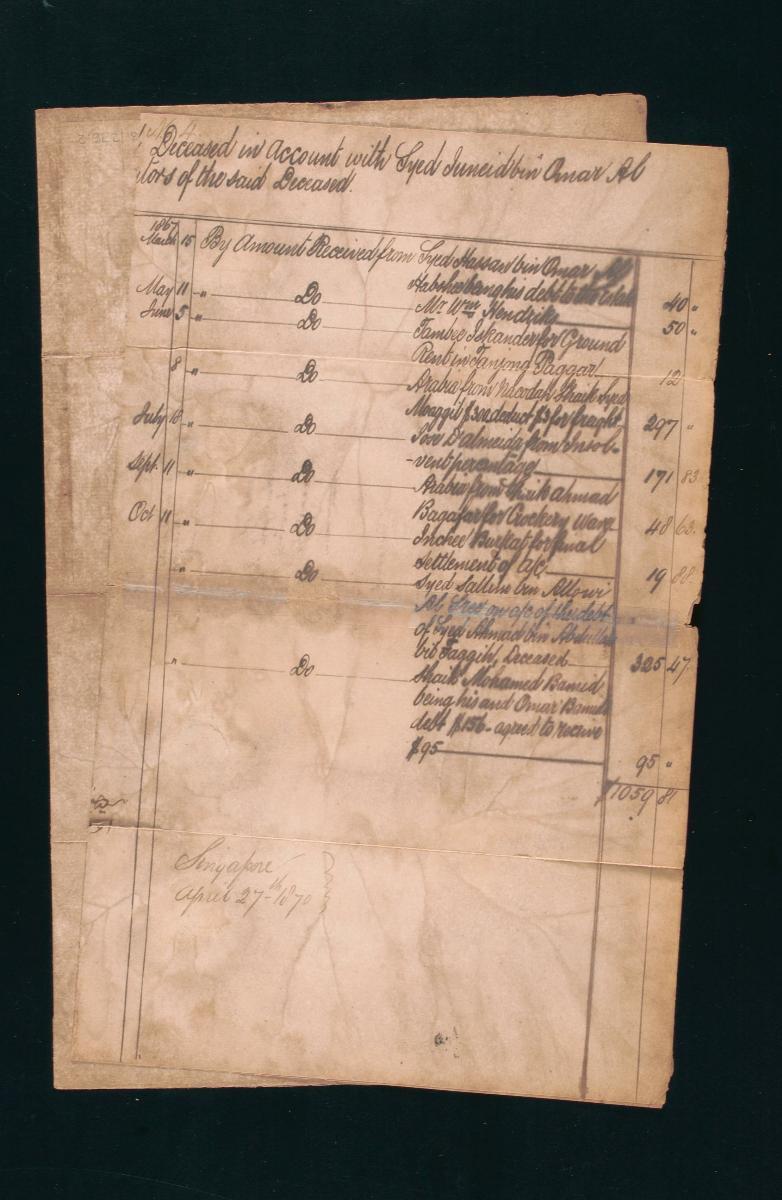 Deceased in Account with Syed Juneid bin Omar Al
utors of the said Deceased.
1867
March 15 By Amount Received from Syed Hassan bin Omar Al
Habshee being his debt to the Estate 40 "
May 11 " Do Mr Wm Hendriks 50 "
June 5 " Do Tambee Iskander for Ground
Rent in Tanjong Paggar 12
8 " Do Arabia from Nacodah Shaik Syed
Moaggil $300 deduct $3 for fraght 297 "
July 18 " Do Jose D'almeida from Insol-
-vent percentage 171 83
Sept. 11 " Do Arabia from Shaik ahmad
Bagafar for Crockery Ware 48 63
Oct 11 " Do Inchee Burkat for final
Settlement of a/c 19 88
" Do Syed Sallim bin Allowi
Al on a/c of the debt
of Syed Ahmad bin Abdullah
bil Faggih, Deceased 325 47
" Do Shaik Mohamed Bamid
being his and Omar Bamid
debt $156- agreed to receive
$95 95 "
$1059 81
Singapore
April 27th 1870